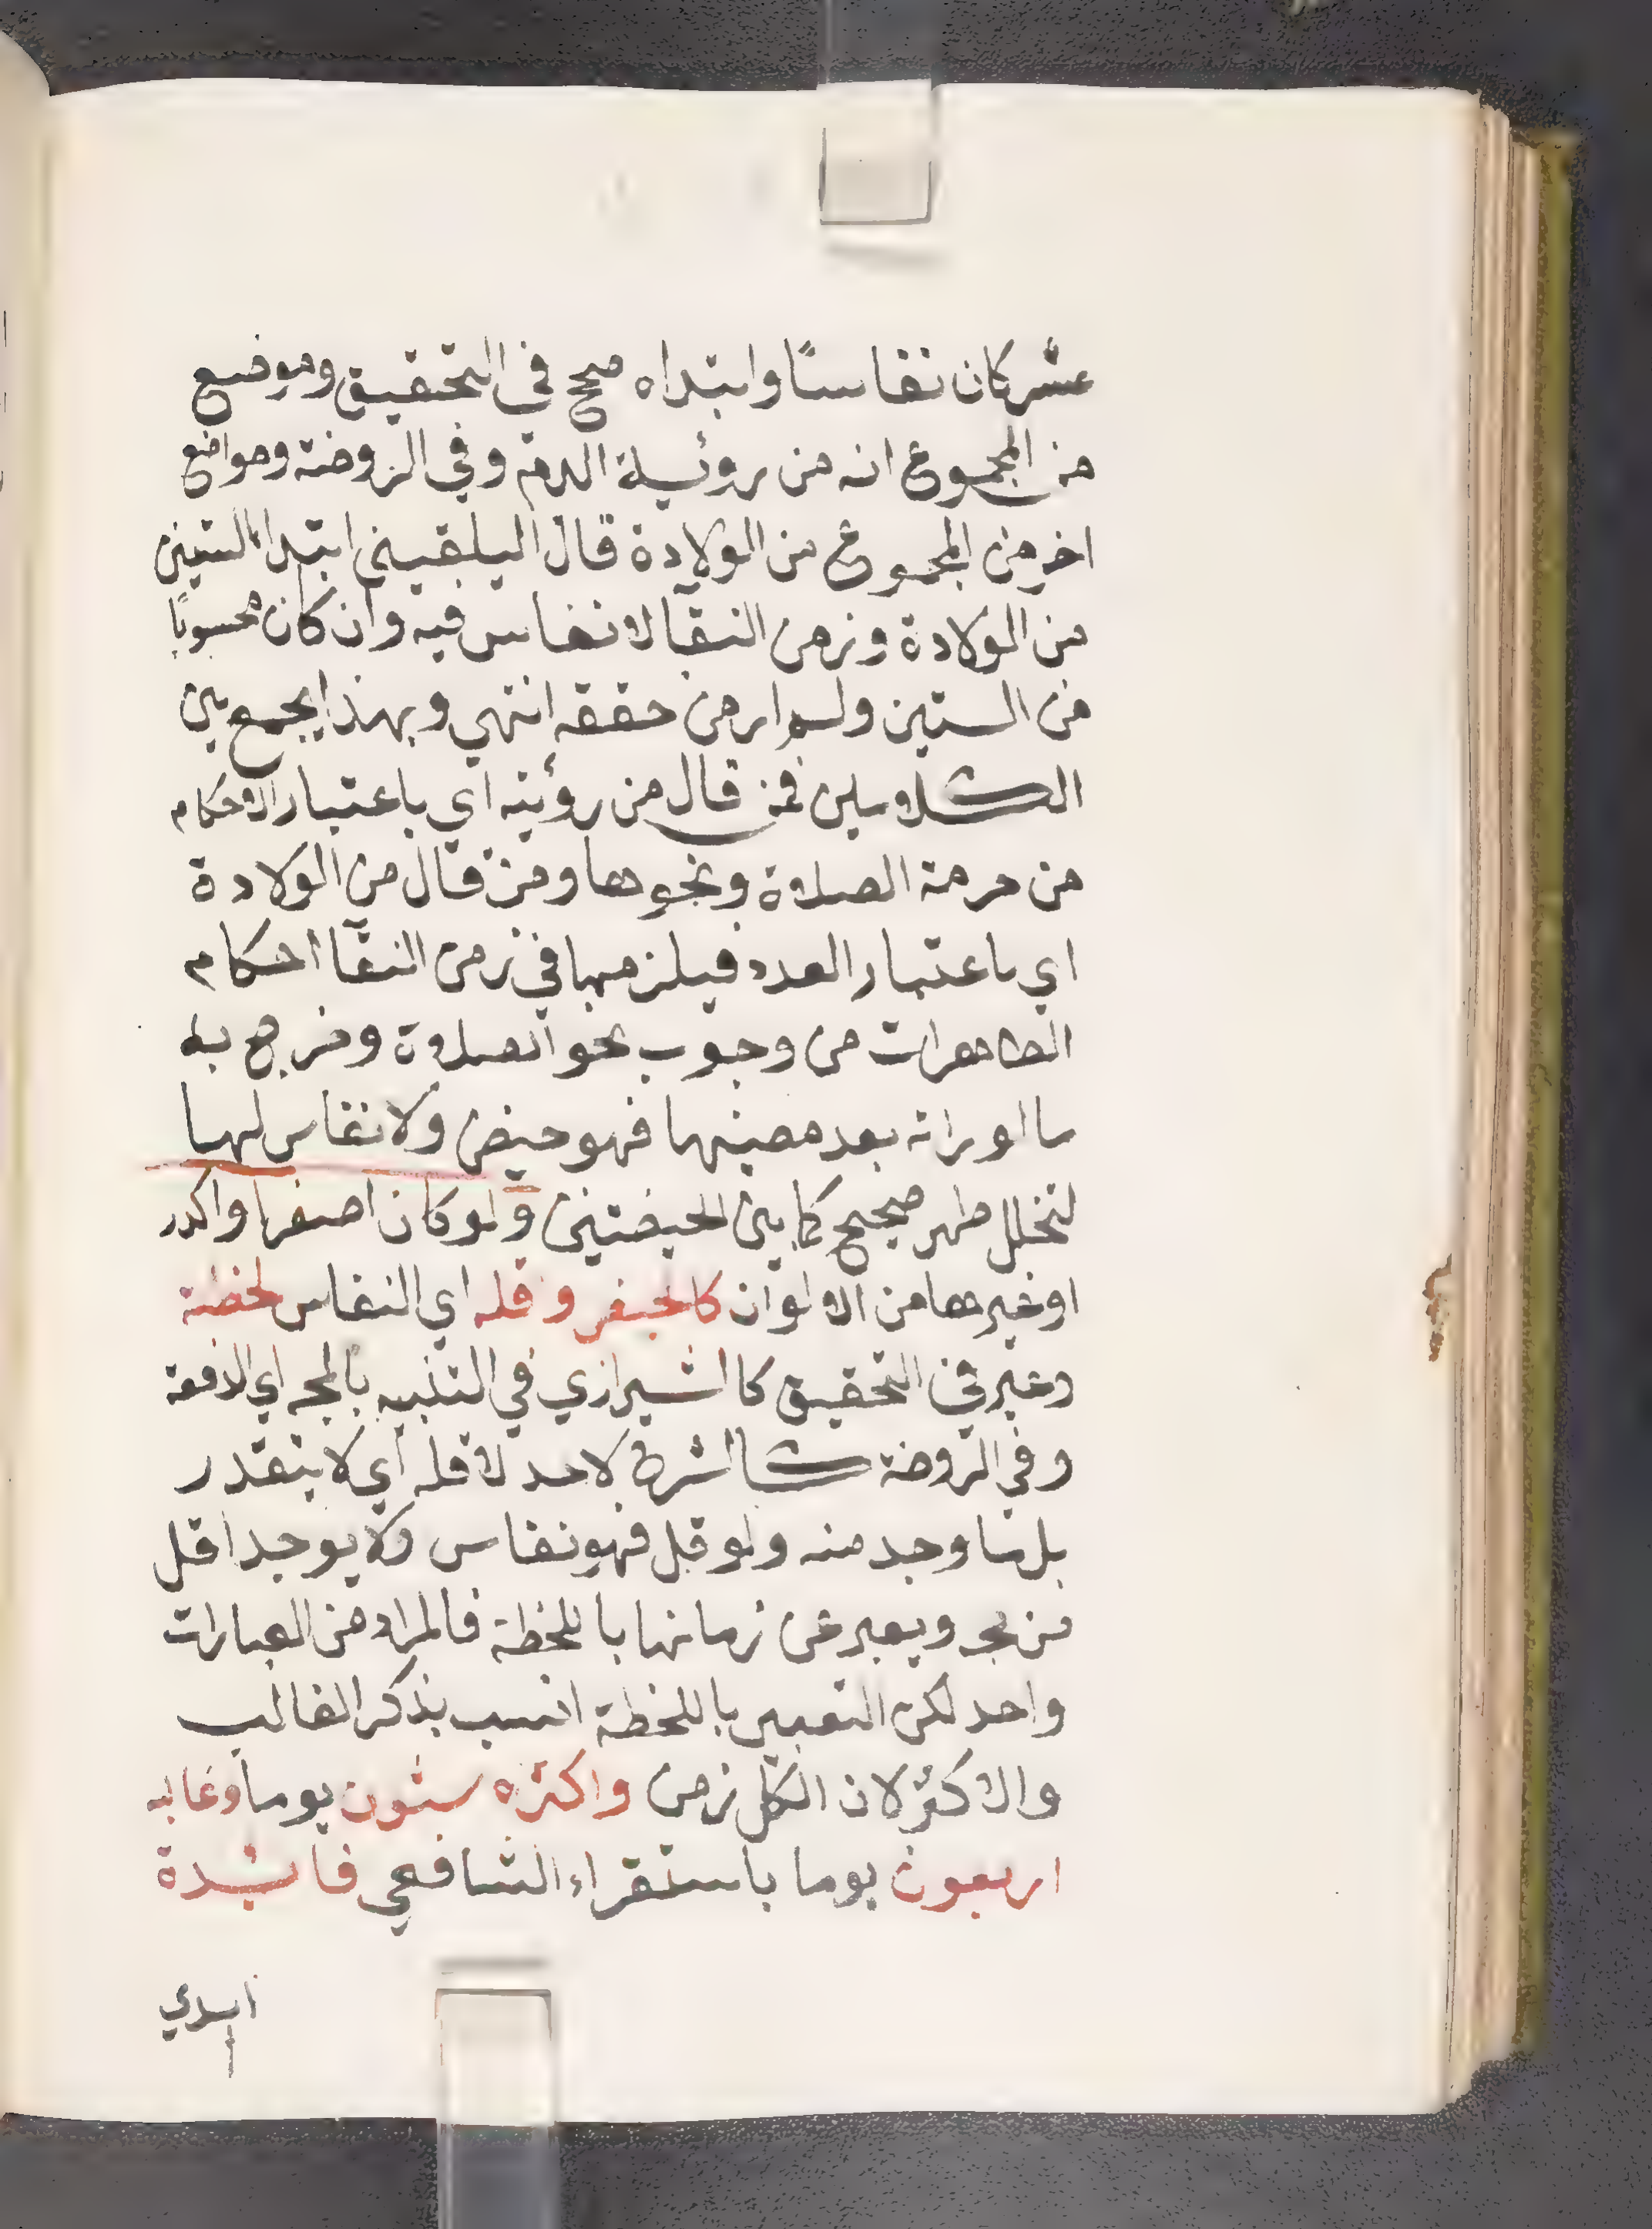 عشر كان نفاسًا وابتداه صحح في التحقيق وموضع
من المجموع انه من روئية الدم وفي الروضة ومواضع
اخر من المجموع من الولادة قال البلقيني ابتداء الستين
من الولادة وزمن النقآ لا نفاس فيه وان كان محسوبًا
من الستين ولم ار من حققه انتهي وبهذا يجمع بين
الكلامين فمن قال من رؤيته اي باعتبار الاحكام
من حرمة الصلاة ونحوها ومن قال من الولادة
اي باعتبار العدد فيلزمها في زمن النقآ احكام
الطاهرات من وجوب نحو الصلاة وخرج به
ما لو راته بعد مضيها فهو حيض ولا نفاس لها
لتخلل طهر صحيح كما بين الحيضتين ولو كان اصفرا واكدر
او غيرها من الالوان كالحيض و قله اي النفاس لحظة
وعبر في التحقيق كالشيرازي في التنبيه بالمجه اي الدفعة
وفي الروضة كالشرح لاحد لاقله اي لا يتقدر
بل ما وجد منه ولو قل فهو نفاس ولا يوجد اقل
من مجه ويعبر عن زمانها باللحظة فالمراد من العبارات
واحد لكن التعبير باللحظة انسب بذكر الغالب
والاكثر لان الكل زمن واكثره ستون يوما وغالبه
اربعون يوما باستقراء الشافعي فائدة
ابدي